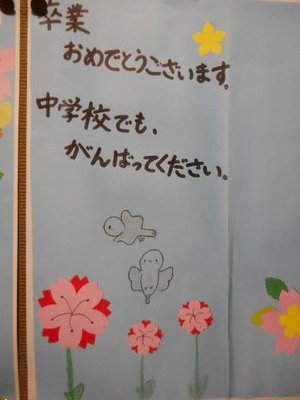 卒業
おめでとうございます。
中学校でも、
がんばってください。